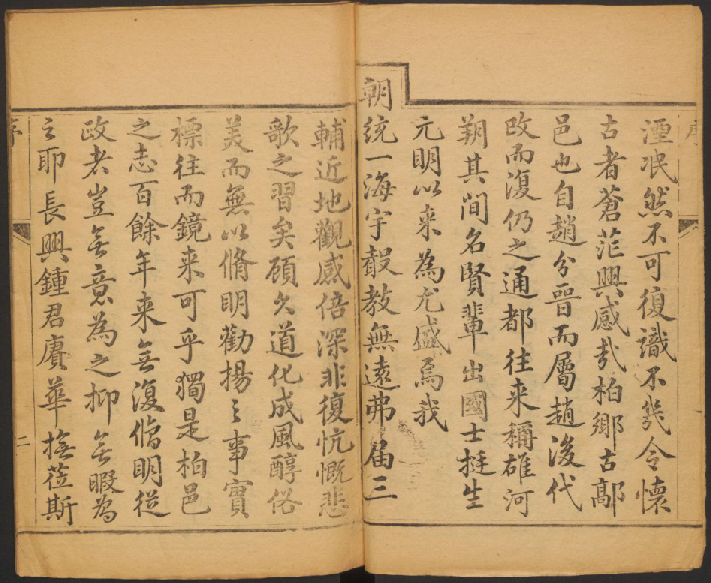 湮冺然不可復識不幾令懷
古者蒼茫興感㢤柏鄉古鄗
邑也自趙分晉而屬趙後代
改而復仍之通都往来稱雄河
朔其间名賢輩出國士挺生
元明以来為尤盛焉我
朝統一海宇聲教無遠弗届三
輔近地觀感倍深非復忼慨悲
歌之習矣顧久道化成風醇俗
美而無以脩明勸揚之事實
標往而鏡来可乎獨是柏邑
之志百餘年来無復脩明從
政者豈無意為之抑無暇為
之耶長興鍾君賡華撫莅斯
序
二